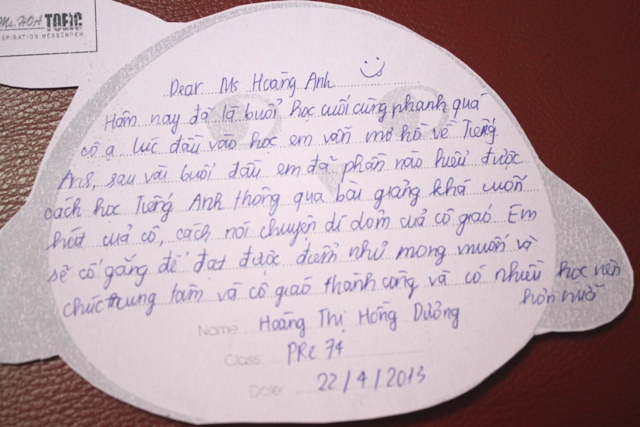 Ms. HOA TOEIC
INSPIRATION MESSENGER
Dear Ms Hoàng Anh
Hôm nay đã là buổi học cuối cùng nhanh quá
cô ạ. lúc đầu vào học em vẫn mơ hồ về Tiếng
Anh, sau vài buổi đầu em đã phần nào hiểu được
cách học Tiếng Anh thông qua bài giảng khá cuốn
hút của cô, cách nói chuyện dí dỏm của cô giáo. Em
sẽ cố gắng để đạt được điểm như mong muốn và
chúc trung tâm và cô giáo thành công và có nhiều học viên
hơn nữa
Name Hoàng Thị Hồng Dưỡng
Class PRE 74
Date: 22/4/2013